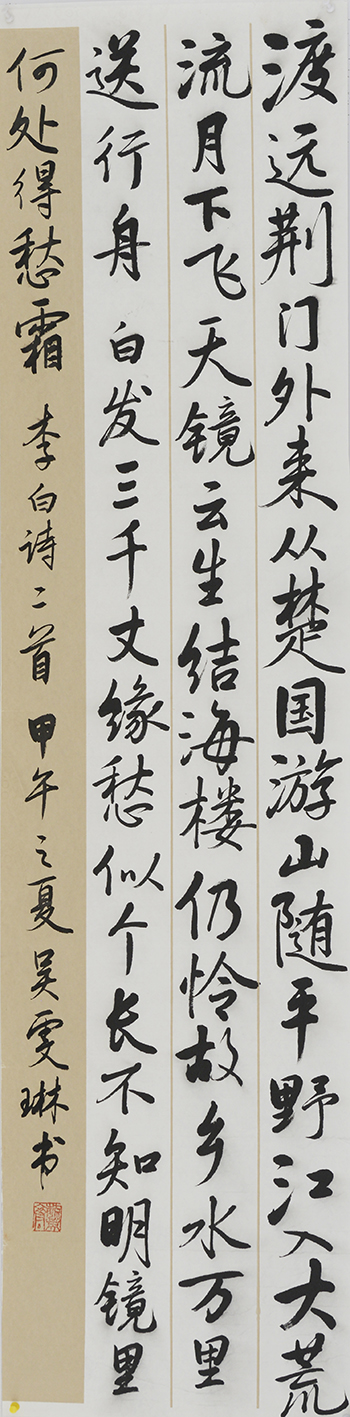 渡远荆门外来从楚国游山随平野江入大荒
流月下飞天镜云生结海楼仍怜故乡水万里
送行舟 白发三千丈缘愁似个长不知明镜里
何处得愁霜 李白诗二首 甲午之夏吴雯琳书